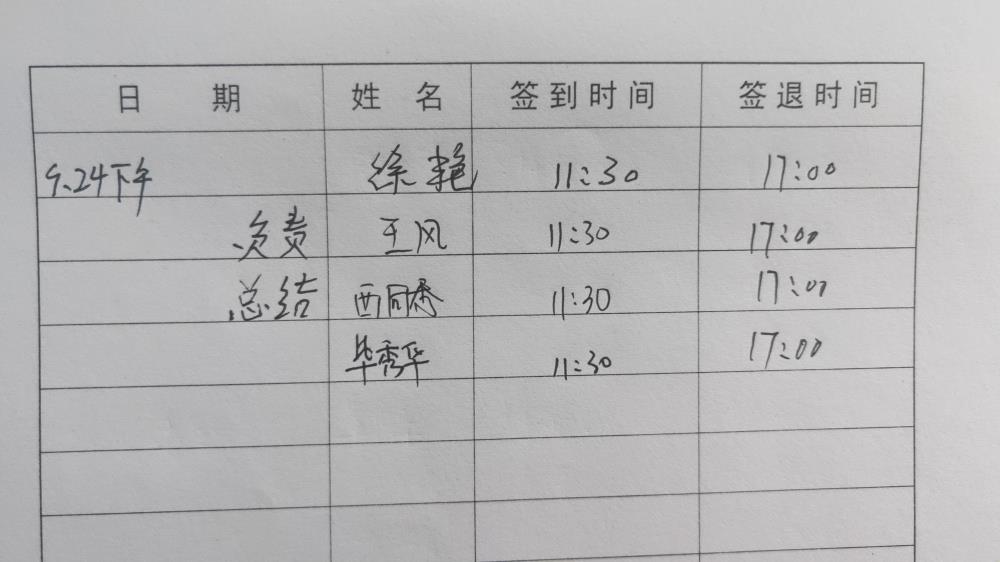 日期 姓名 签到时间 签退时间
9.24下午 徐艳 11:30 17:00
负责 王风 11:30 17:00
总结 西同秀 11:30 17:00
毕秀华 11:30 17:00